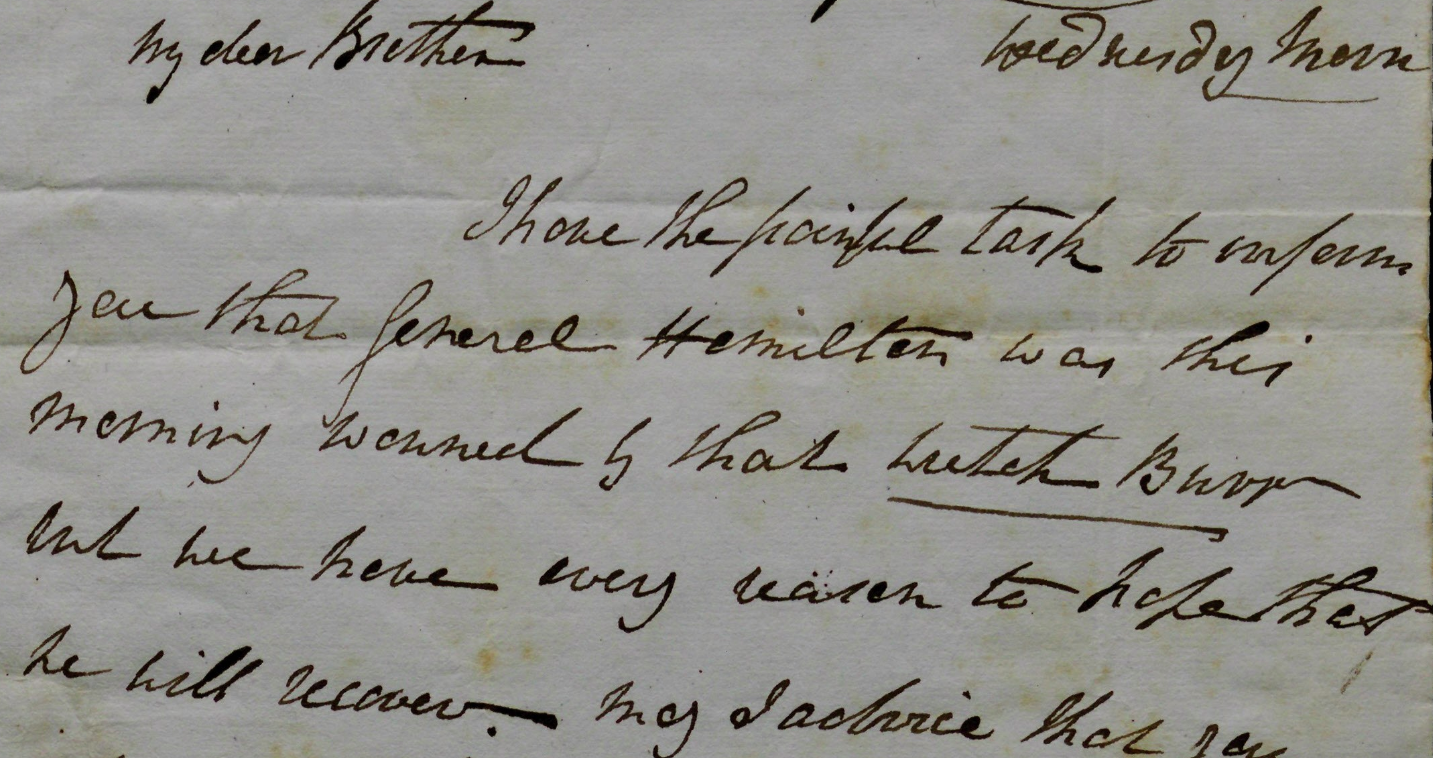 My dear Brother Wednesday Morn
I have the painful task to inform
you that General Hamilton was this
morning wouned by that wretch Burr
but we have every reason to hope that
he will recover. May I advice that you